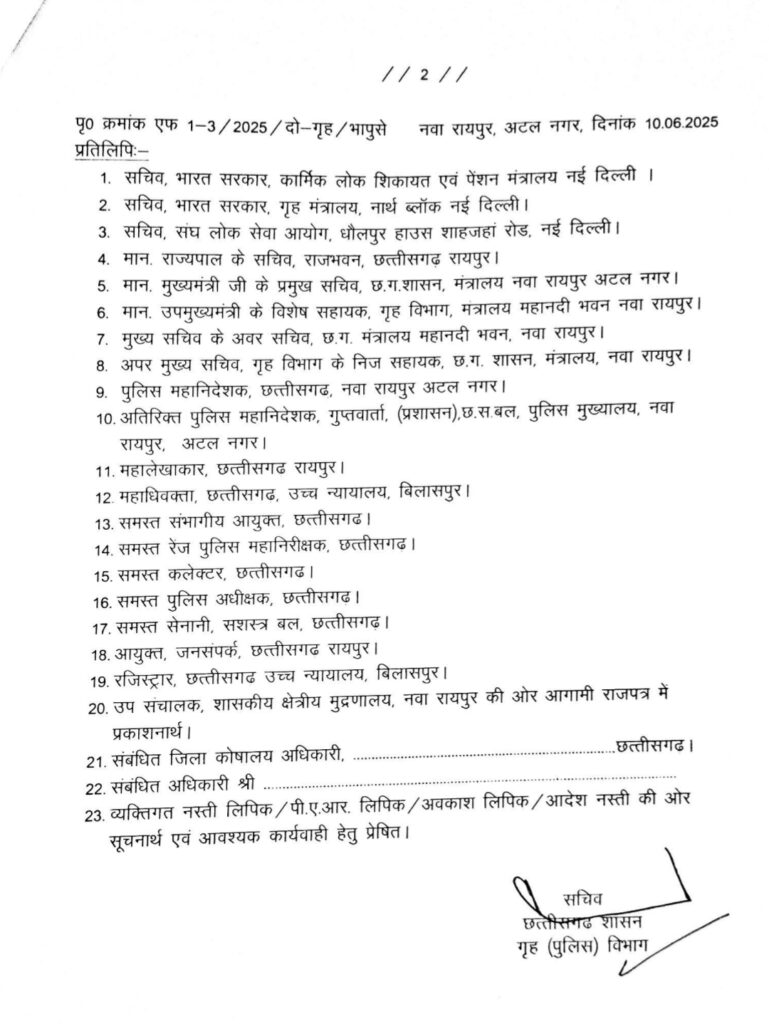 // 2 //
पृ0 क्रमांक एफ 1-3/2025/दो-गृह/भापुसे नवा रायपुर, अटल नगर, दिनांक 10.06.2025
प्रतिलिपिः-
1. सचिव, भारत सरकार, कार्मिक लोक शिकायत एवं पेंशन मंत्रालय नई दिल्ली ।
2. सचिव, भारत सरकार, गृह मंत्रालय, नार्थ ब्लॉक नई दिल्ली।
3. सचिव, संघ लोक सेवा आयोग, धौलपुर हाउस शाहजहां रोड, नई दिल्ली।
4. मान. राज्यपाल के सचिव, राजभवन, छत्तीसगढ़ रायपुर।
5. मान. मुख्यमंत्री जी के प्रमुख सचिव, छ.ग.शासन, मंत्रालय नवा रायपुर अटल नगर।
6. मान. उपमुख्यमंत्री के विशेष सहायक, गृह विभाग, मंत्रालय महानदी भवन नवा रायपुर।
7. मुख्य सचिव के अवर सचिव, छ.ग. मंत्रालय महानदी भवन, नवा रायपुर।
8. अपर मुख्य सचिव, गृह विभाग के निज सहायक, छ.ग. शासन, मंत्रालय, नवा रायपुर।
9. पुलिस महानिदेशक, छत्तीसगढ, नवा रायपुर अटल नगर।
10. अतिरिक्त पुलिस महानिदेशक, गुप्तवार्ता, (प्रशासन),छ.स.बल, पुलिस मुख्यालय, नवा
रायपुर, अटल नगर।
11. महालेखाकार, छत्तीसगढ रायपुर।
12. महाधिवक्ता, छत्तीसगढ, उच्च न्यायालय, बिलासपुर।
13. समस्त संभागीय आयुक्त, छत्तीसगढ।
14. समस्त रेंज पुलिस महानिरीक्षक, छत्तीसगढ।
15. समस्त कलेक्टर, छत्तीसगढ।
16. समस्त पुलिस अधीक्षक, छत्तीसगढ।
17. समस्त सेनानी, सशस्त्र बल, छत्तीसगढ।
18. आयुक्त, जनसंपर्क, छत्तीसगढ रायपुर।
19. रजिस्ट्रार, छत्तीसगढ उच्च न्यायालय, बिलासपुर।
20. उप संचालक, शासकीय क्षेत्रीय मुद्रणालय, नवा रायपुर की ओर आगामी राजपत्र में
प्रकाशनार्थ।
21. संबंधित जिला कोषालय अधिकारी, ............................................................छत्तीसगढ।
22. संबंधित अधिकारी श्री ............................................................
23. व्यक्तिगत नस्ती लिपिक/पी.ए.आर. लिपिक/अवकाश लिपिक/आदेश नस्ती की ओर
सूचनार्थ एवं आवश्यक कार्यवाही हेतु प्रेषित।
सचिव
छत्तीसगढ शासन
गृह (पुलिस) विभाग